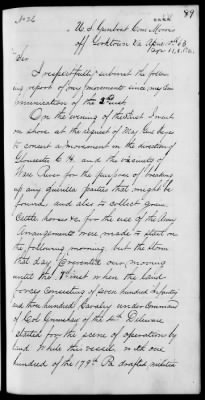 No 26
89
U. S. Gunboat Com Morris
off Yorktown Va April 11th 63
Sir
I respectfully submit the follow
ing report of my movements since my com
munication of the 2nd inst
On the evening of the inst I went
on shore at the request of Maj Gen Keyes
to concert a movement in the direction of
Gloucester C. H. and the vicinity of
Ware River for the purpose of breaking
up any guerilla parties that might be
found, and also to collect grain
Cattle horses &c. for the use of the Army
Arrangements were made to start on
the following morning, but the storm
that day prevented our moving
until the 7th inst when the land
forces consisting of five hundred infantry
and three hundred Cavalry under command
of Col Grimshaw of the 4th Delaware
started for the scene of operations by
land While this vessel, with one
hundred of the 179th Pa drafted militia